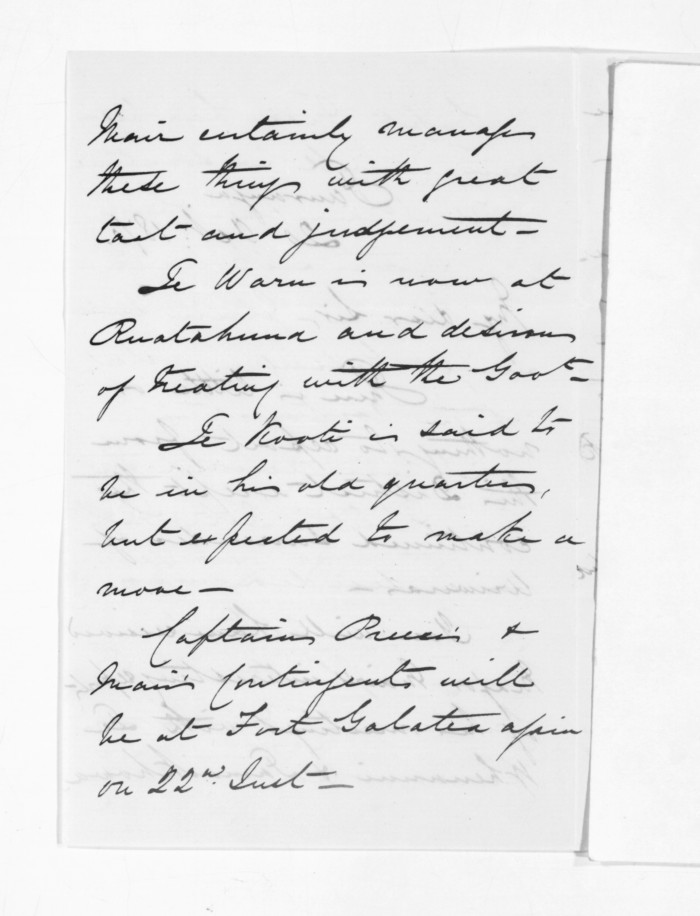 Mair certainly manages
these things with great
tact and judgement -
Te Waru is now at
Ruatahuna and desirous
of treating with the Govt -
Te Kooti is said to
be in his old quarters,
but expected to make a
move -
Captains Preece's &
Mair's Contingents will
be at Fort Galatea again
on 22nd Inst -